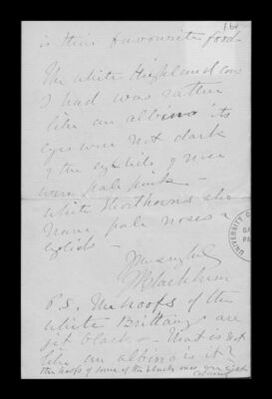 is their favourite food.
The white Highland cow
I had was rather
like an albino its
eyes were not dark
& the eyelids & nose
were pale pink -
white Shorthorns also
have pale noses &
eyelids -
P.S. The hoofs of the
white Brittany are
jet black - that is not
like an albino is it?
The hoofs of some of the blacks are light
coloured